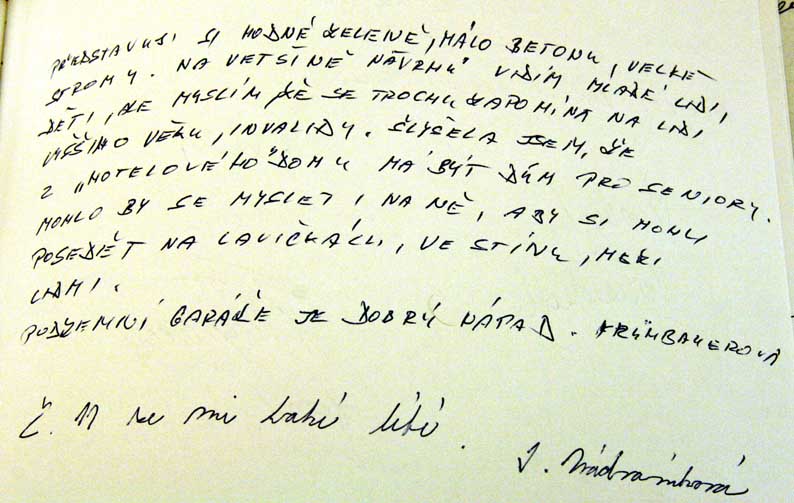 PŘEDSTAVUJI SI HODNĚ ZELENĚ, MÁLO BETONU, VELKÉ
STROMY. NA VETŠINĚ NÁVRHŮ VIDÍM MLADÉ LIDI,
DĚTI, ALE MYSLÍM ŽE SE TROCHU ZAPOMÍNÁ NA LIDI
VYŠŠÍHO VĚKU, INVALIDY. SLYŠELA JSEM, ŽE
Z „HOTELOVÉHO" DOMU MÁ BÝT DŮM PRO SENIORY.
MOHLO BY SE MYSLET I NA NĚ, ABY SI MOHLI
POSEDĚT NA LAVIČKÁCH, VE STÍNU, MEZI
LIDMI.
PODZEMNÍ GARÁŽE JE DOBRÝ NÁPAD. KRÜMBAUEROVÁ
Č. 11 se mi také líbí.
J.